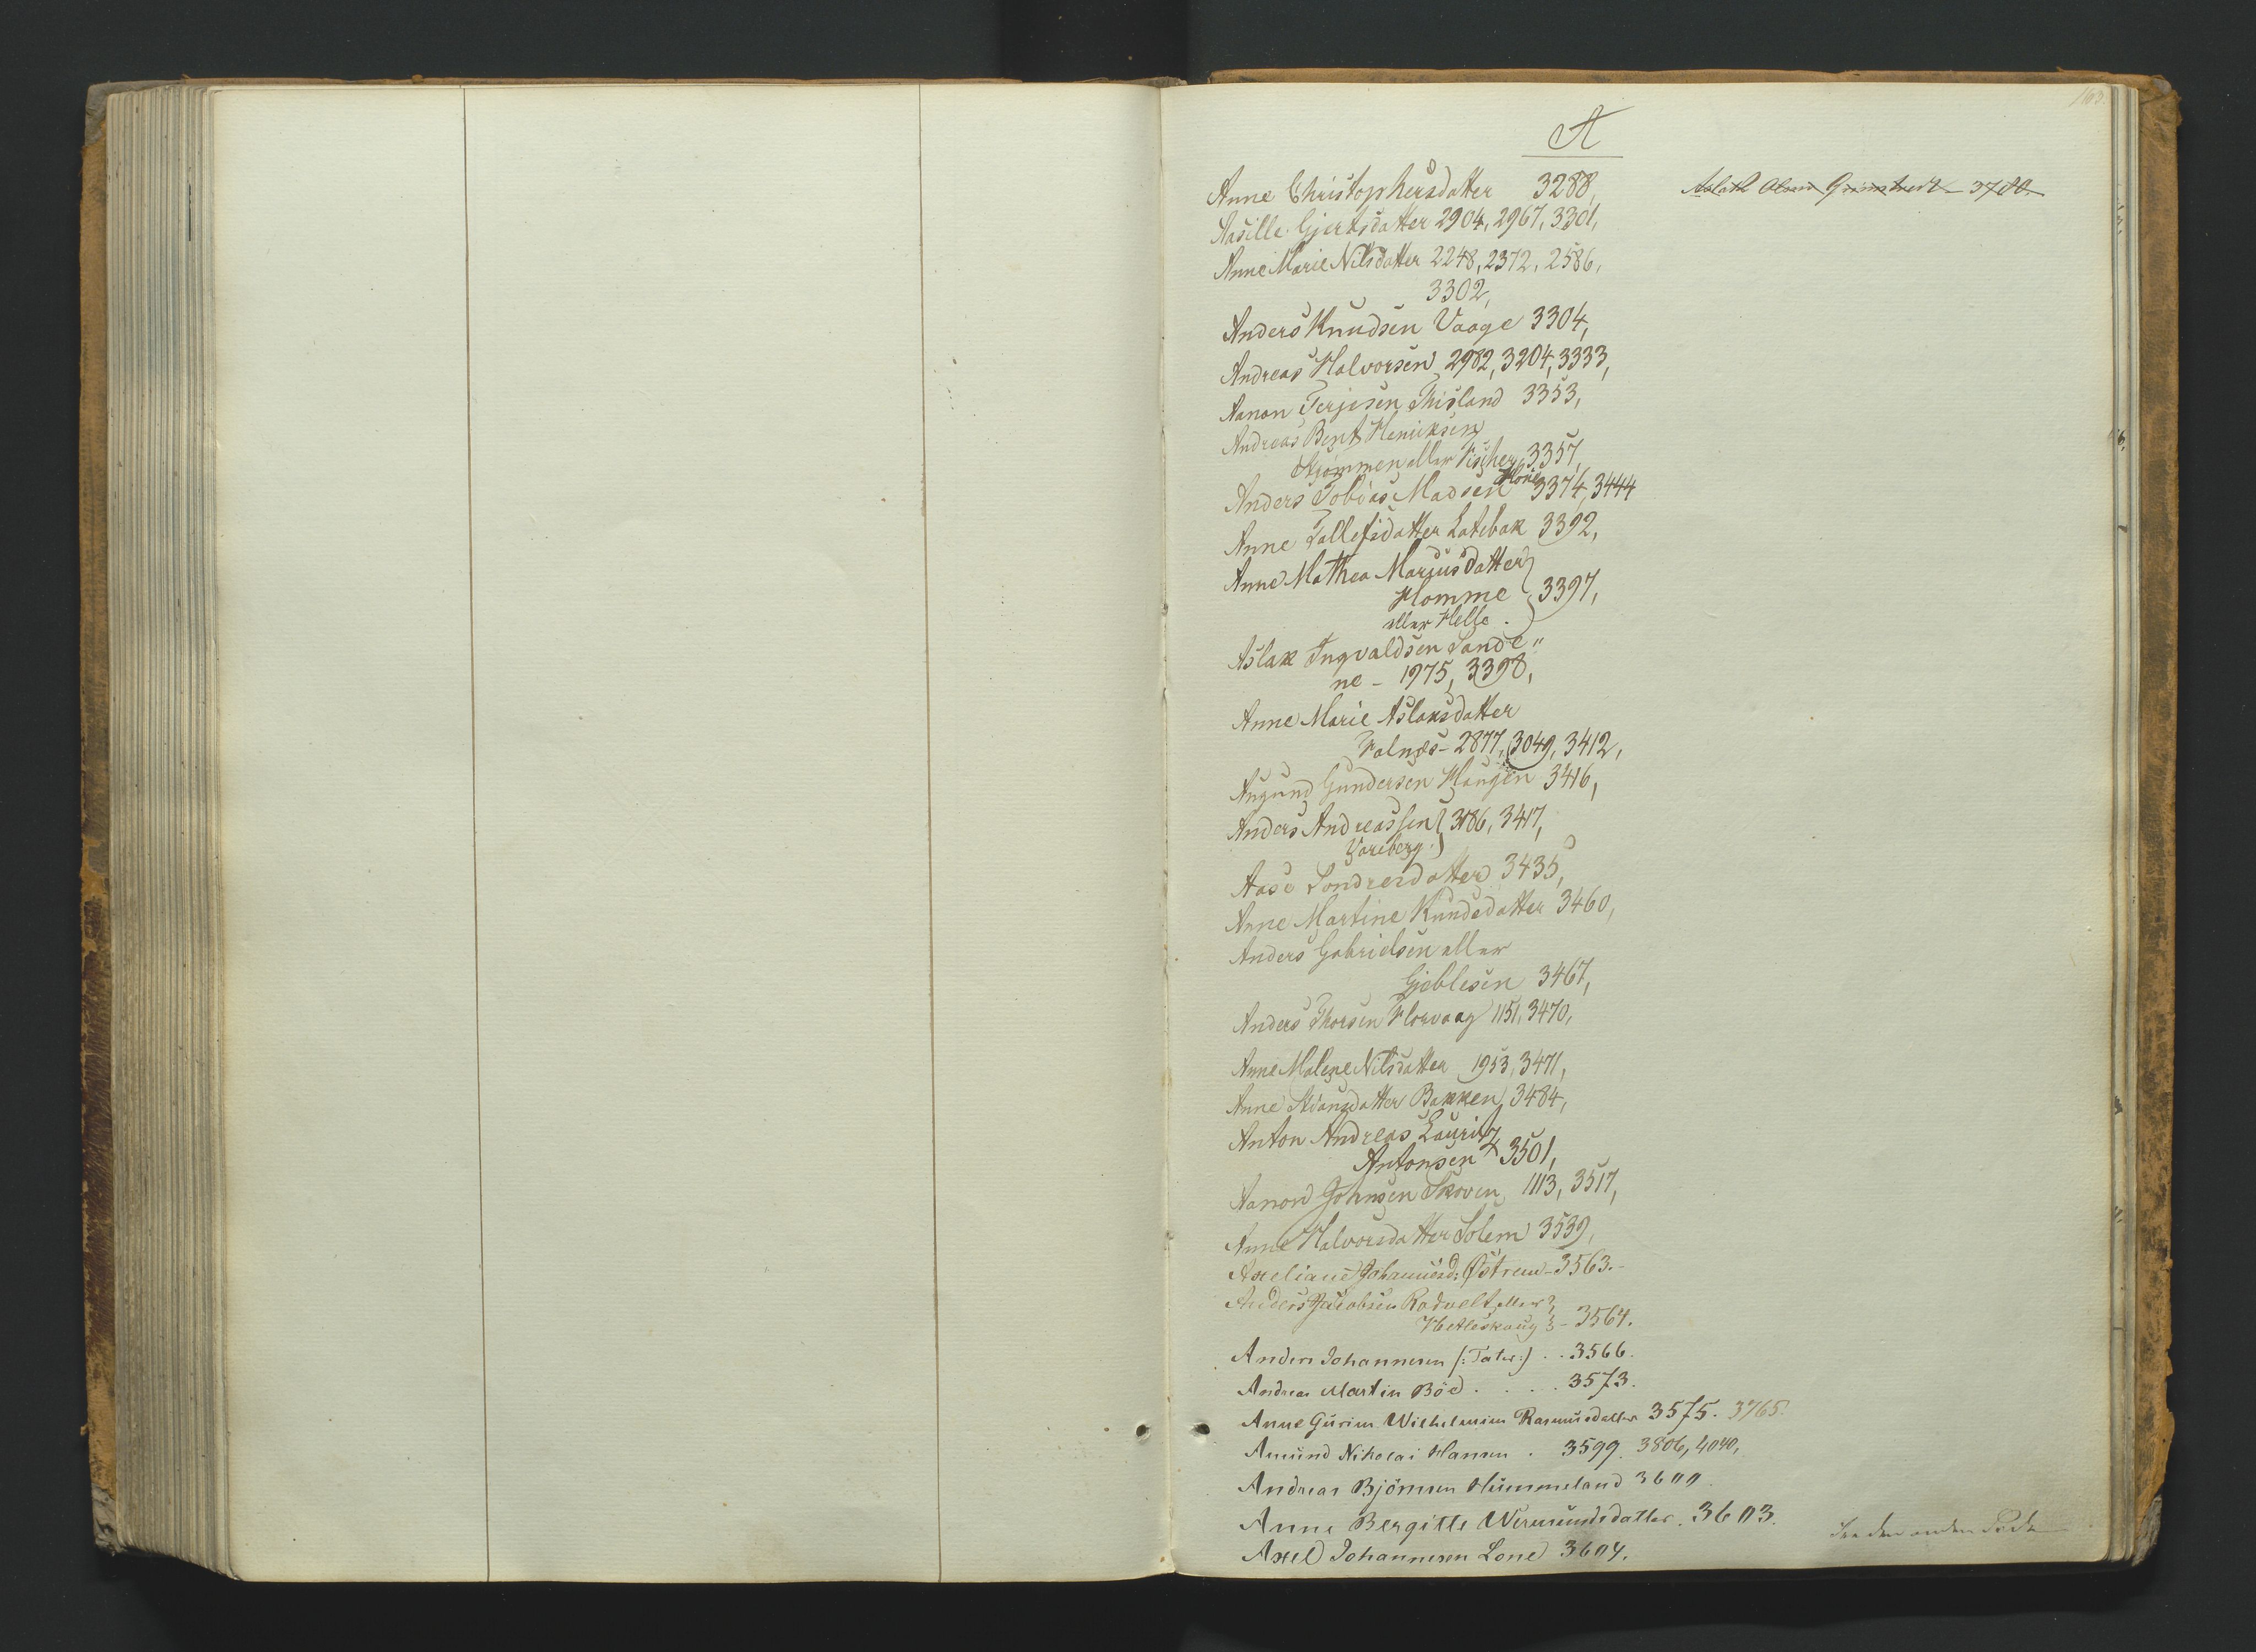 163.
A
Anne Christophersdatter 3288,
Aasille Gjertsdatter 2904, 2967, 3301,
Anne Marie Nilsdatter 2248, 2372, 2586,
3302,
Anders Knudsen Vaage 3304,
Andreas Halvorsen 2982, 3204, 3333,
Aanon Terjesen Thisland 3353,
Andreas Bent Henriksen
Strömmen eller Fischer, 3357,
Anders Tobias Madsen Hone 3374, 3444
Anne Tallefsdatter Latebak 3392,
Anne Mathea Mariusdatter
Homme 3397,
eller Helle.
Aslak Ingvaldsen Sande"
ne - 1975, 3398,
Anne Marie Aslaksdatter
Valnæs - 2877, 3049, 3412,
Augund Gundersen Haugen 3416,
Anders Andreassen 3186, 3417,
Vareberg.
Aase Sondresdatter 3435,
Anne Martine Knudsdatter 3460,
Anders Gabrielsen eller
Gjeblesen 3467,
Anders Thorsen Florvaag 1151, 3470,
Anne Malene Nilsdatter 1953, 3471,
Anne Stiansdatter Bakken 3484,
Anton Andreas Lauritz
Antonsen 3501,
Aanon Johnsen Skoven, 1113, 3517,
Anne Halvorsdatter Solem 3539,
Axeliane Johannesd: Östrem - 3563.-
Anders Jacobsen Rødvelt eller
Hetleskoug - 3564.
Anders Johannesen (:Tater:) . . 3566.
Andreas Martin Böe . . . . 3573.
Anne Gurine Wilhelmine Rasmusdatter 3575. 3765.
Amund Nikolai Hansen . 3599. 3806, 4040,
Andreas Björnsen Hummeland 3600.
Anne Bergitte Wermundsdatter. 3603.
Axel Johannesen Lone 3604.
Aslak Olsen Grimstvedt - 3780.
See den anden Side